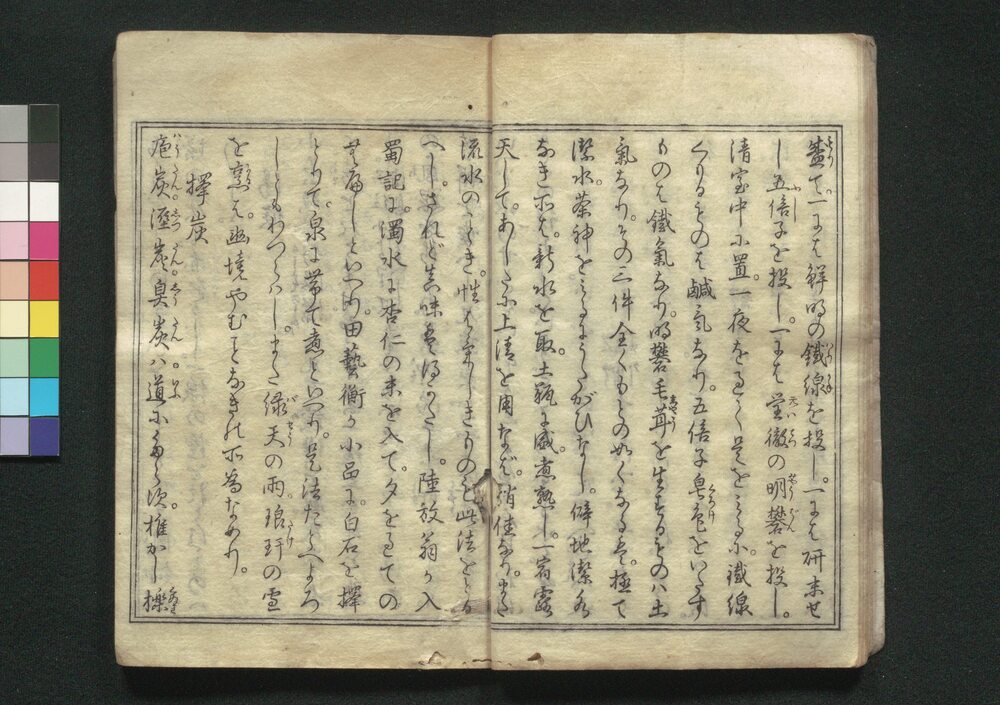 盞て。一には鮮明の鐵線を投し。一には研末せ
し五倍子を投し。一には瑩徹の明礬を投し。
清室中に置。一夜をへて是をみるに。鐵線
くりるものは鹹氣なり。五倍子皂色をいたす
ものは鐵氣なり。明礬毛茸を生するものは土
氣なり。その三件全くもとの如くなるは。極て
潔水。茶神をみるにうたがひなし。僻地潔水
なき所は。新水を取。土瓶に盛。煮熟し。一宿露
天して。あしたに上清を用なば。稍佳なり。また
流水のごとき。性もあしきものを此法をとる
へし。されど真味は得がたし。陸放翁か入
蜀記に。濁水に杏仁の末を入て。夕をへての
む有しといへり。田藝衡か小品に。白石を擇
とりて。泉に帯て煮といへり。是法たとへよろ
しくもわつらはし。また緑天の雨。琅玕の雪
を烹は。幽境やむことなきの所為なめり。
擇炭
疱炭。溼炭。臭炭ハ道にあらす。堆かし擽